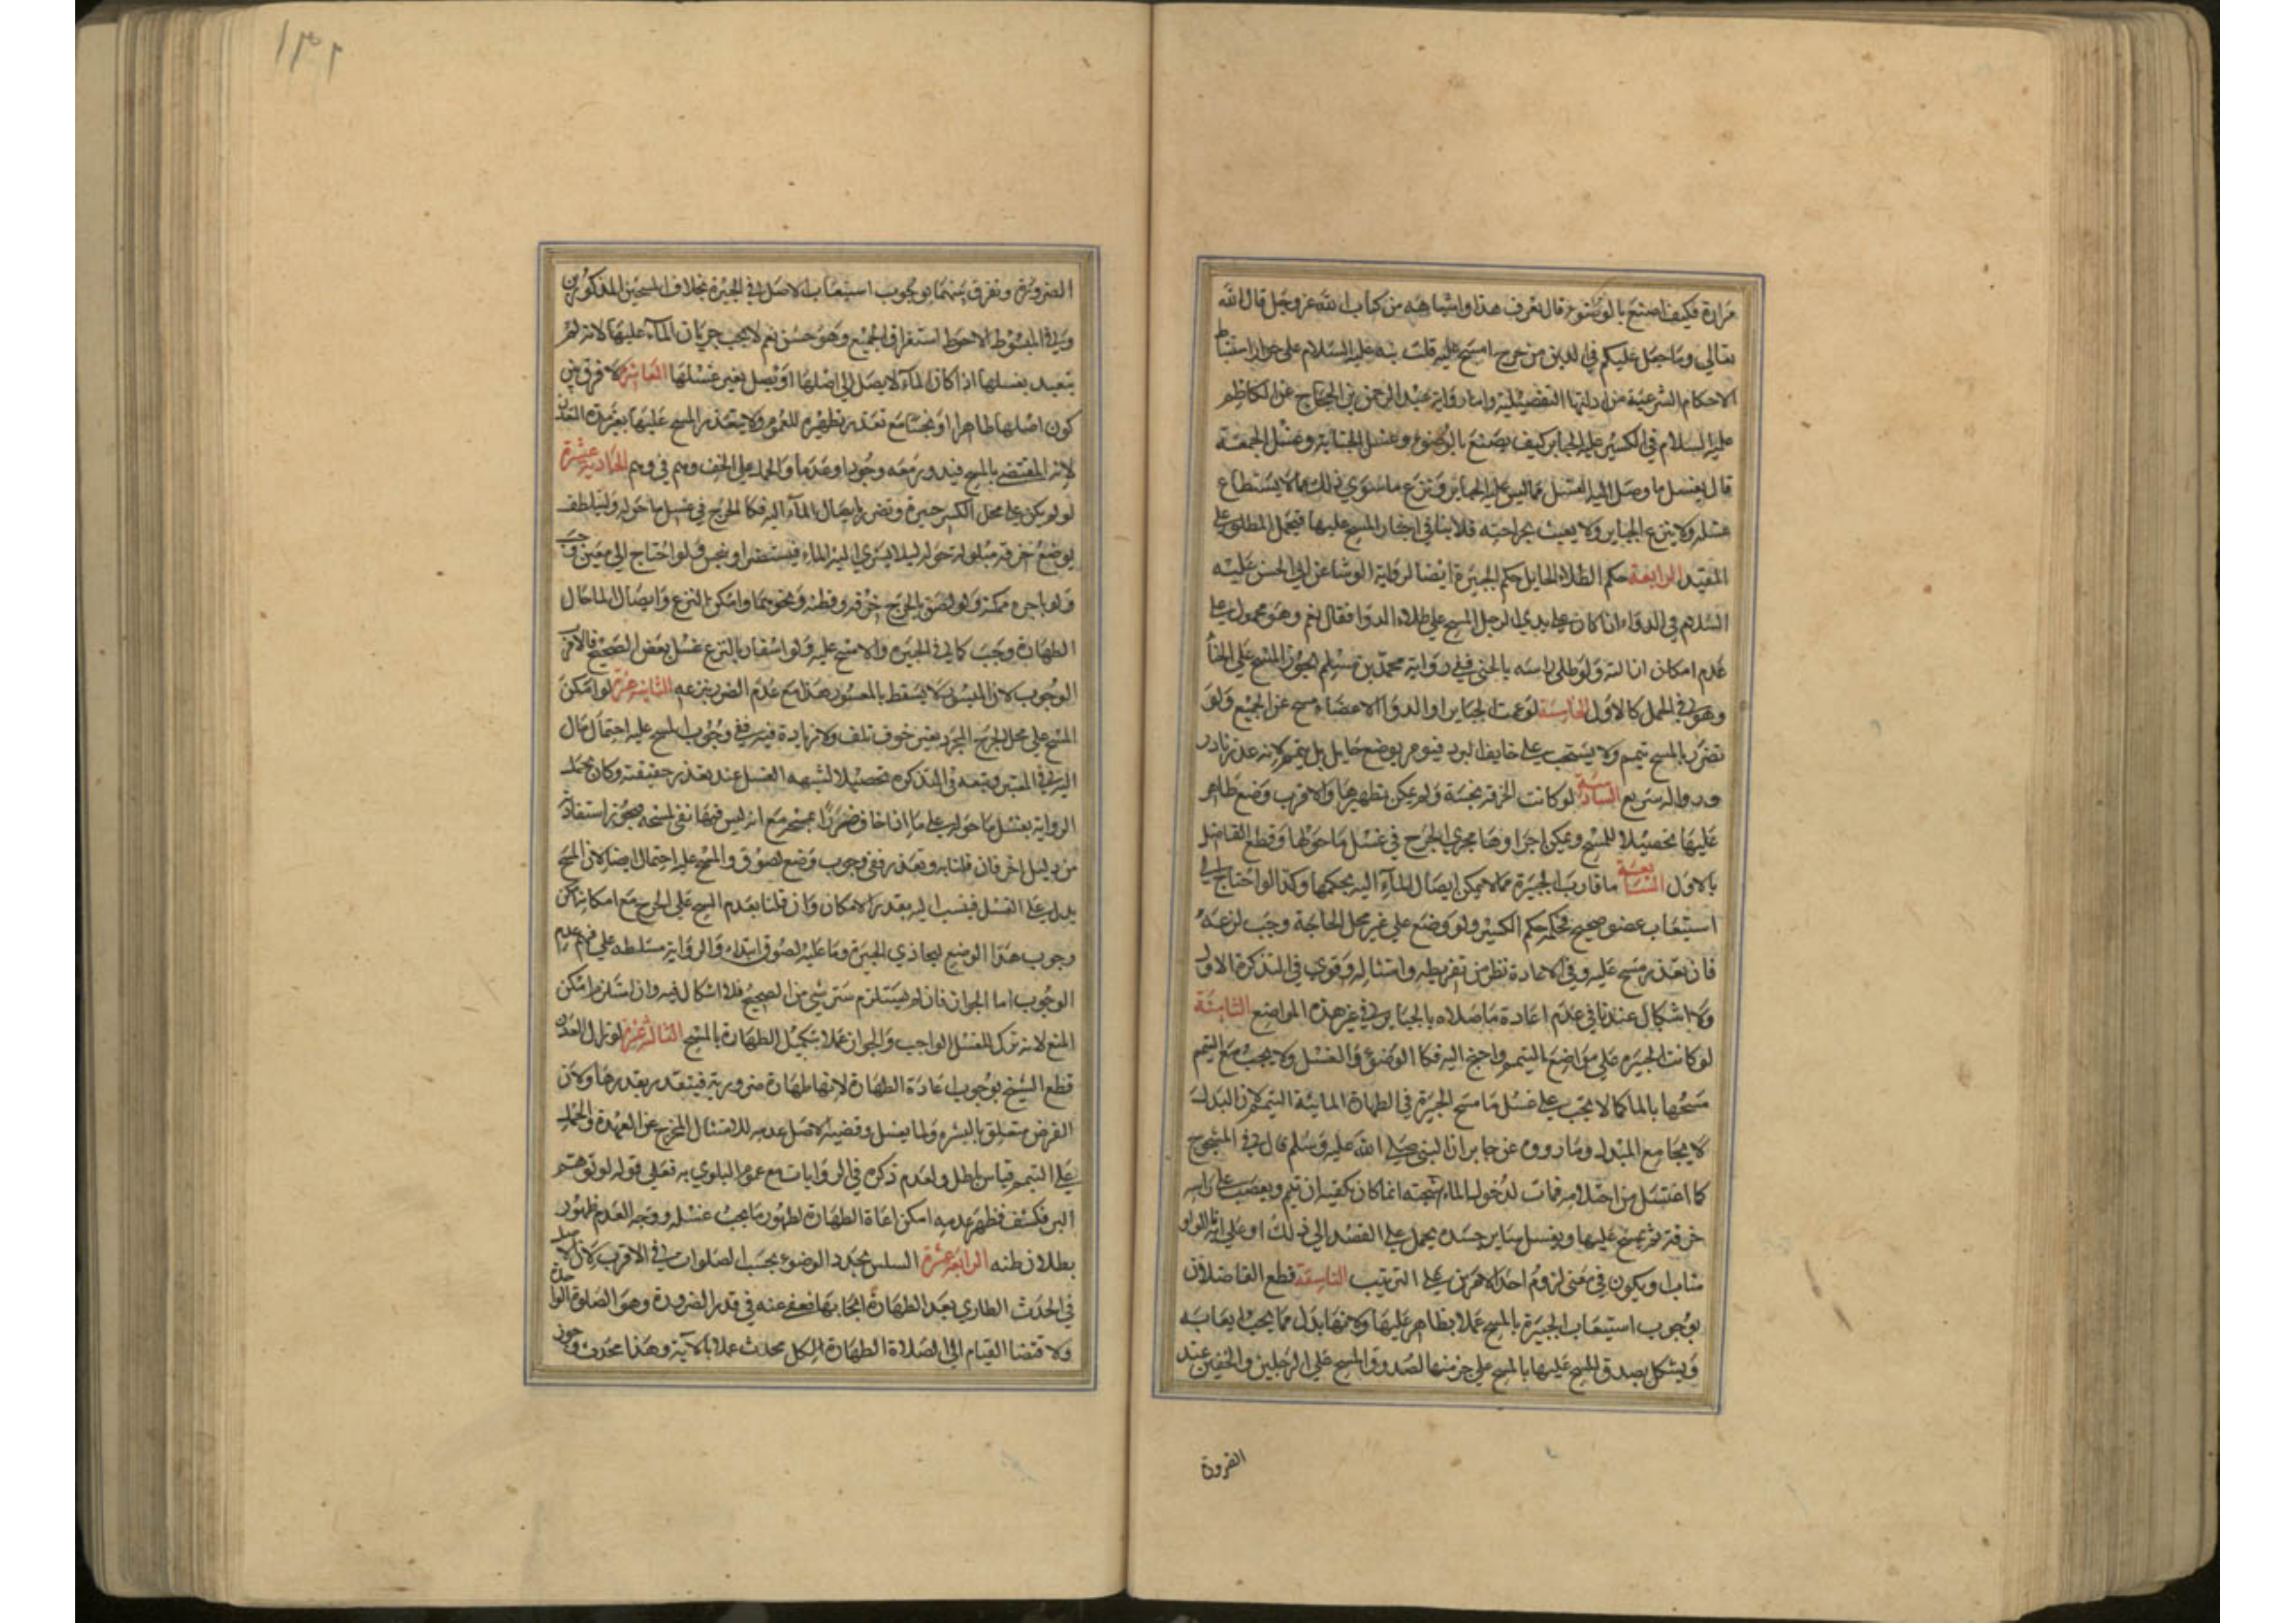 مرارة فكيف اصنع بالوضوء قال تعرف هذا واشباهه من كتاب الله عز وجل قال الله
تعالى وما جعل عليكم في الدين من حرج امسح عليه قلت نبه عليه السلام على جواز استنباط
الاحكام الشرعية من ادلتها التفصيلية واما رواية عبد الرحمن بن الحجاج عن الكاظم
عليه السلام في الكسير عليه الجباير كيف يصنع بالوضوء وغسل الجنابة وغسل الجمعة
قال يغسل ما وصل اليه الغسل مما ليس عليه الجباير ويدع ما سوى ذلك مما لا يستطاع
غسله ولا ينزع الجباير ولا يعبث بجراحته فلا ينافي اخبار المسح عليها فيحمل المطلق على
المقيد الرابعة حكم الطلاء الحايل حكم الجبيرة ايضا لرواية الوشا عن ابي الحسن عليه
السلام في الدواء اذا كان على يدي الرجل المسح على طلاء الدوا فقال نعم وهو محمول على
عدم امكان ازالته ولو طلى راسه بالحنى ففي رواية محمد بن مسلم يجوز المسح على الحنا
وهو في الحمل كالاول الخامسة لو عمت الجباير او الدوا الاعضاء مسح على الجميع ولو
تضرر بالمسح تيمم ولا يستحب على خايف البرد فيومر بوضع حايل بل يتيمم لانه عذر نادر
وزواله سريع السادسة لو كانت الخرقة نجسة ولم يمكن تطهيرها فالاقرب وضع طاهر
عليها تحصيلا للمسح ويمكن اجراوها مجرى الجرح في غسل ما حولها وقطع الفاضل
بالاول السابعة ما قارب الجبيرة مما لا يمكن ايصال الماء اليه بحكمها وكذا لو احتاج الى
استيعاب عضو صحيح فحكمه حكم الكسير ولو وضع على غير محل الحاجة وجب نزعه
فان تعذر مسح عليه وفي الاعادة نظر من تفريطه وامتثاله وقوى في التذكرة الاول
ولا اشكال عندنا في عدم اعادة ما صلاه بالجباير في غير هذه المواضع الثامنة
لو كانت الجبيرة على مواضع التيمم واحتج اليه فكالوضوء والغسل ولا يجب مع التيمم
مسحها بالما كما لا يجب على غسل ما مسح الجبيرة في الطهارة المائية التيمم لان البدل
لا يجامع المبدل وما رووه عن جابر ان النبي صلى الله عليه وسلم قال في المشجوج
كما اغتسل من احتلامه فمات لدخول الماء شجته انما كان يكفيه ان يتيمم ويعصب على راسه
خرقة ثم يمسح عليها ويغسل ساير جسده يحمل على القصد الى ذلك او على الواو
ويكون في معنى لزوم احد الامرين على الترتيب التاسعة قطع الفاضلان
بوجوب استيعاب الجبيرة بالمسح عملا بظاهر عليها ولانها بدل مما يجب ايعابه
ويشكل بصدق المسح عليها بالمسح على جز منها لصدق المسح على الرجلين والخفين عند
الضرورة
١٣٢
الضرورة ونفرق بينهما بوجوب استيعاب الاصل في الجبيرة بخلاف المسحين المذكورين
وفي المبسوط الاحوط استغراق الجميع وهو حسن نعم لا يجب جريان الماء عليها لانه لم
يتعبد بغسلها اذا كان الماء لا يصل الى اصلها او يصل بغير غسلها العاشرة لا فرق بين
كون اصلها طاهرا او نجسا مع تعذر تطهيره للعموم ولا يتقدر المسح عليها بغير مدة التعذر
لانه المقتضي بالمسح فيدور معه وجودا وعدما والحمل على الخف وهم في وهم الحادية عشرة
لو لم يكن على محل الكسر جبيرة وتضرر بايصال الماء اليه فكالجرح في غسل ما حوله وليتلطف
بوضع خرقة مبلولة حوله ليلا يسرى اليه الماء فيستضر او ينجس ولو احتاج الى معين وجب
ولو باجرة ممكنة ولو لصق بالجرح خرقة وقطنة ونحوهما وامكن النزع وايصال الما حال
الطهارة وجب كما في الجبيرة والا مسح عليه ولو استفاد بالنزع غسل بعض الصحيح فالاقرب
الوجوب لان الميسور لا يسقط بالمعسور هذا مع عدم الضرر بنزعه الثانية عشرة لو امكن
المسح على محل الجرح المجرد بغير خوف تلف ولا زيادة فيه ففي وجوب المسح عليه احتمال مال
اليه في المعتبر وتبعه في التذكرة تحصيلا لشبه الغسل عند تعذر حقيقته وكان يحمل
الرواية بغسل ما حوله على ما اذا خاف ضررا بمسحه مع انه ليس فيها نفي لمسحه فيجوز استفادته
من دليل اخر فان قلنا به وتعذر ففي وجوب وضع لصوق والمسح عليه احتمال ايضا لان المسح
بدل على الغسل فينسب اليه بقدر الامكان وان قلنا بعدم المسح على الجرح مع امكانه امكن
وجوب هذا الوضع ليحاذي الجبيرة وما عليه لصوق ابتداء والرواية مسلطة على فهم عدم
الوجوب اما الجواز فان لم يستلزم ستر شي من الصحيح فلا اشكال فيه وان استلزم امكن
المنع لانه ترك للغسل الواجب والجواز عملا بتكميل الطهارة بالمسح الثالثة عشرة لو زال العذر
قطع الشيخ بوجوب اعادة الطهارة لانها طهارة ضرورية فيتقدر بقدرها ولان
الفرض متعلق بالبشرة ولما يغسل وقضية الاصل عدمه للامتثال المخرج عن العهدة والحمل
على التيمم قياس باطل ولعدم ذكره في الروايات مع عموم البلوى به فعلى قوله لو توهم
البرء فكشف فظهر عدمه امكن اعادة الطهارة لظهور ما يجب غسله ووجه العدم ظهور
بطلان ظنه الرابعة عشرة السلس يجدد الوضوء بحسب الصلوات في الاقرب لان الاصل
في الحدث الطاري بعد الطهارة ايجابها فعفي عنه في قدر الضرورة وهو الصلوة الواحدة
ولاقتضا القيام الى الصلاة الطهارة لكل محدث عملا بالآية وهذا محدث وجوز